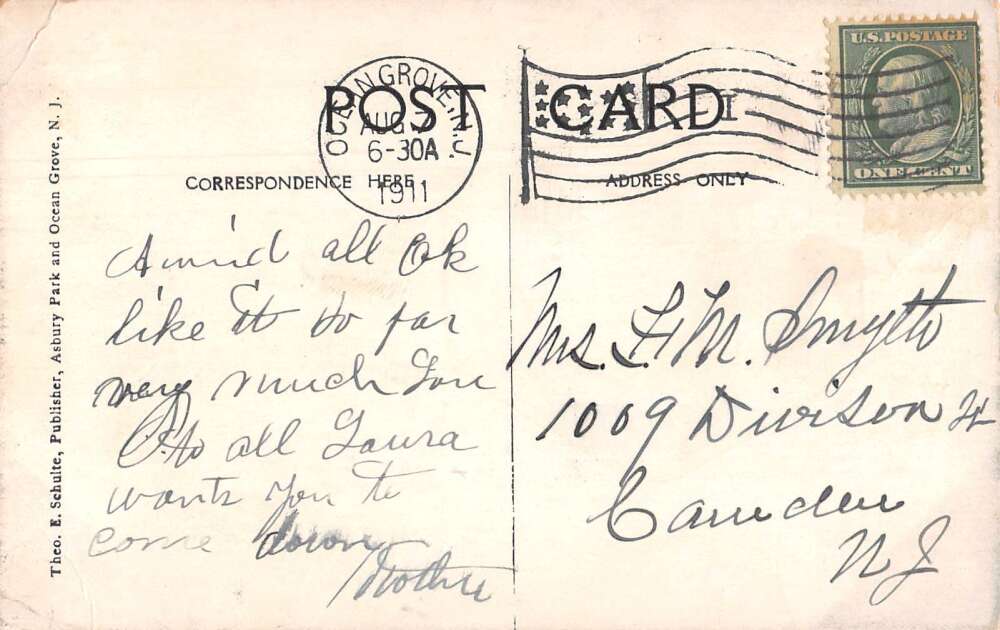 POST CARD
OCEAN GROVE, N.J.
AUG
6-30A
1911
U.S. POSTAGE
ONE CENT
CORRESPONDENCE HERE
ADDRESS ONLY
Theo. E. Schulte, Publisher, Asbury Park and Ocean Grove, N. J.
all Ok
like it so far
very much Love
to all Laura
wants you to
come down
Mother
Mrs. F. M. Smyth
1009 Division St
Camden
N J